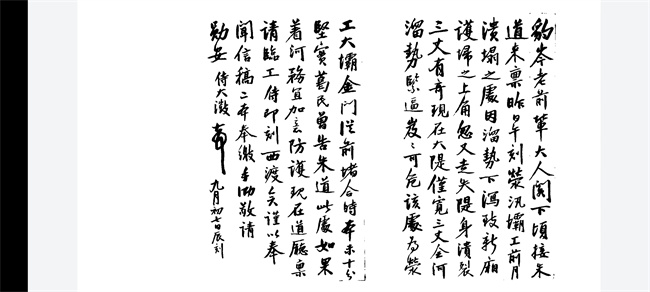 豹岑老前輩大人閣下頃接朱
道來稟昨早刻滎汛壩工前月
潰塌之處因溜勢下瀉致新廂
護埽之上角忽又走失隄身潰裂
三丈有奇現在大隄僅寬三丈全河
溜勢緊逼岌〻可危該處為滎
工大壩金門從前堵合時本未十分
堅實葛民曾告朱道此處如果
着河務宜加意防護現在道廳稟
請臨工侍即刻西渡矣謹以奉
聞信稿二本奉繳手泐敬請
勛安 侍大澂
九月初七日辰刻